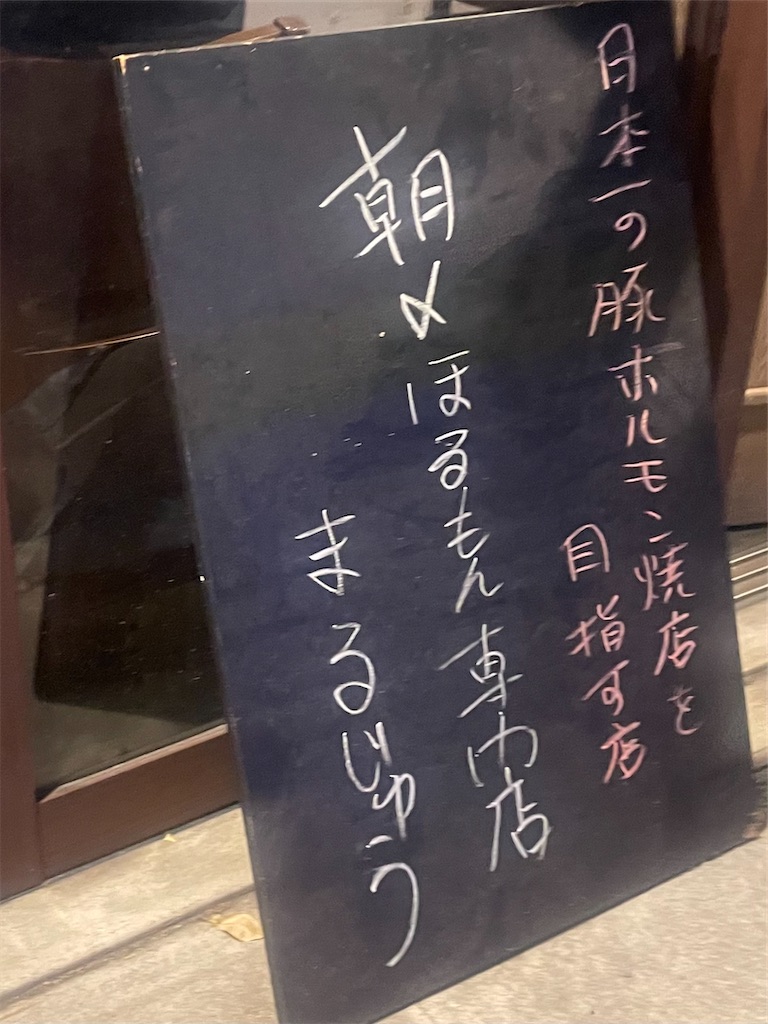 日本一の豚ホルモン焼店を
目指す店
朝〆ほるもん専門店
まるじゅう